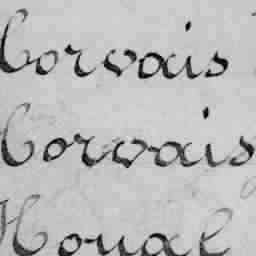 Corvais
Corvais
Houal